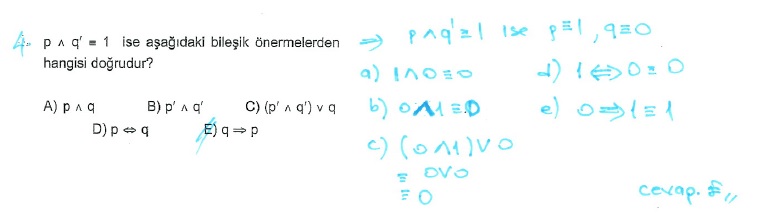 4. p ∧ q′ ≡ 1 ise aşağıdaki bileşik önermelerden
hangisi doğrudur?
A) p ∧ q B) p′ ∧ q′ C) (p′ ∧ q′) ∨ q
D) p ⇔ q E) q ⇒ p
⇒ p∧q′≡1 ise p≡1, q≡0
a) 1∧0≡0
b) 0∧1≡0
c) (0∧1)∨0
≡ 0∨0
≡ 0
d) 1⇔0≡0
e) 0⇒1≡1
cevap. E,,